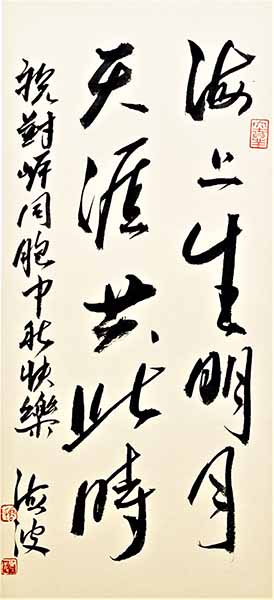 海上生明月
天涯共此時
祝對岸同胞中秋快樂
海波